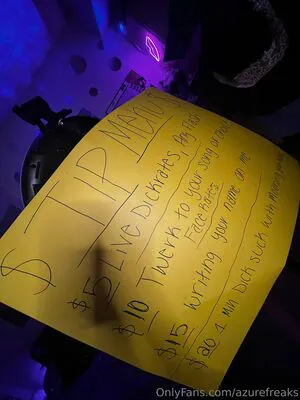 $ TIP MENU $
$5 Live Dickrates, Any First
$10 Twerk to your song or mine
Face Rates
$15 Writing your name on me
$20 1 min Dick suck with
OnlyFans.com/azurefreaks